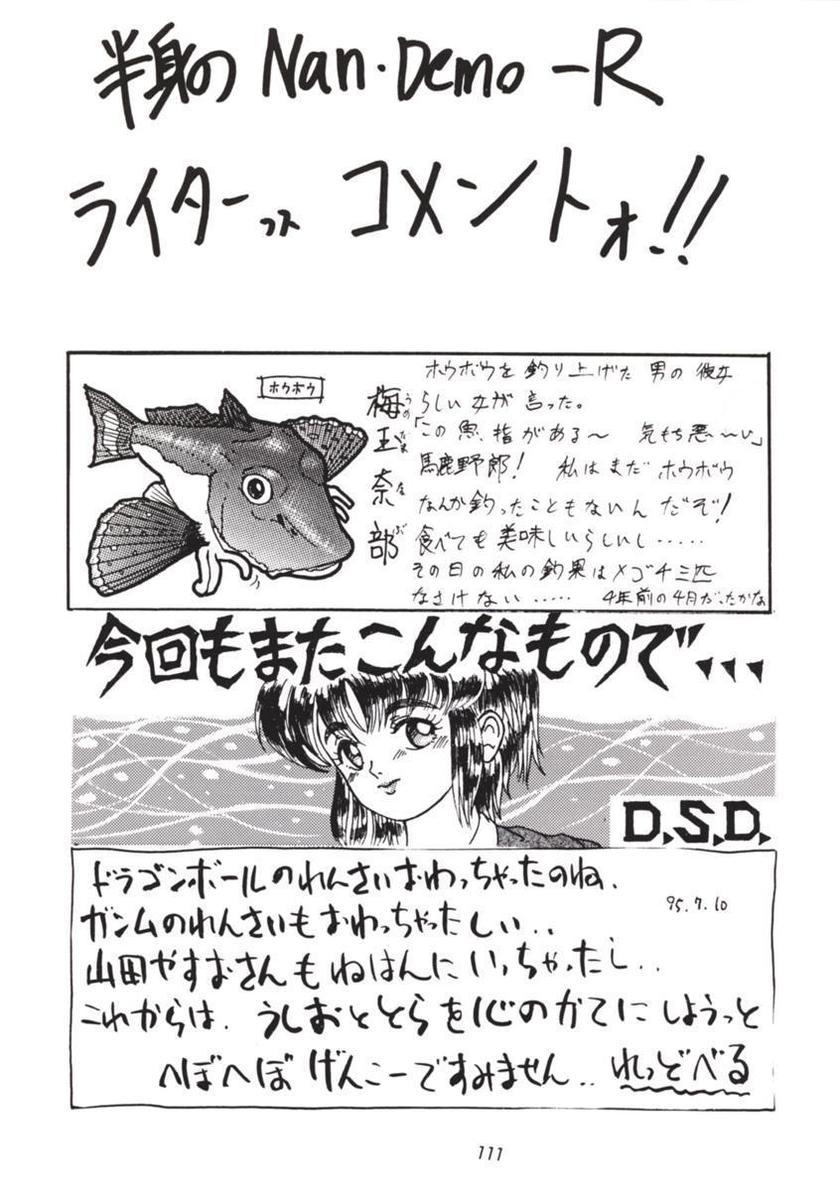 半身の Nan・Demo-R
ライターズ コメントォ!!
ホウボウ
梅玉奈部
うめ たま な べ
ホウボウを釣り上げた 男の 彼女
らしい 女が 言った。
「この魚、指がある〜 気もち悪〜い」
馬鹿野郎! 私はまだ ホウボウ
なんか釣ったこともないんだぞ!
食べても美味しいらしいし・・・・・
その日の私の釣果はメゴチ三匹
なさけない・・・・・ 4年前の4月だったかな
今回もまたこんなもので、、、
D.S.D.
ドラゴンボールのれんさいおわっちゃったのね、
95.7.10
ガンムのれんさいもおわっちゃったしい..
山田やすおさんもねはんにいっちゃったし..
これからは、うしおととらを心のかてにしようっと
へぼへぼげんこーですみません.. れっどべる
111